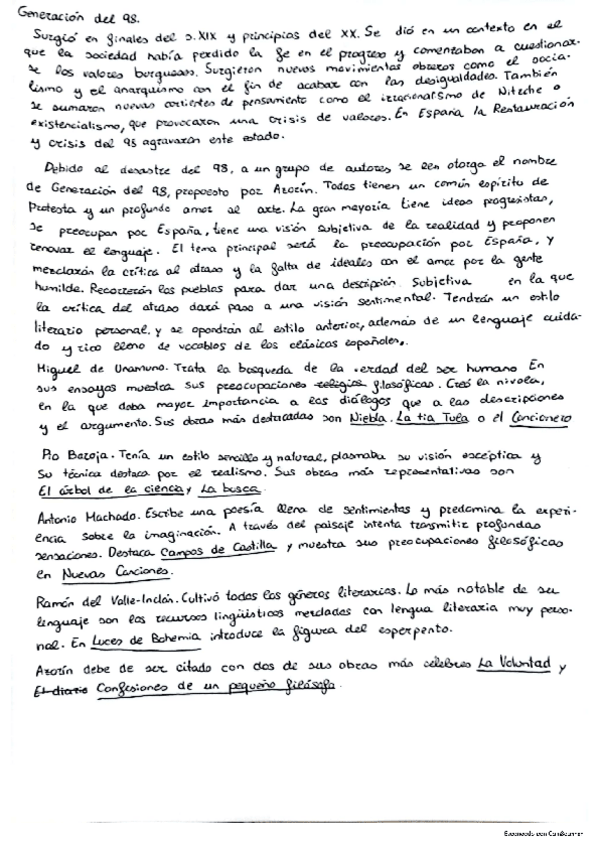 Generación del 98.
Surgió en finales del s.XIX y principios del XX. Se dió en un contexto en el
que la sociedad había perdido la fe en el progreso y comentaban a cuestionar-
se los valores burgueses. Surgieron nuevos movimientos obreros como el socia-
lismo y el anarquismo con el fin de acabar con las desigualdades. También
se sumaron nuevas corrientes de pensamiento como el irracionalismo de Nitzche o
existencialismo, que provocaron una crisis de valores. En España la Restauración
y crisis del 98 agravaron este estado.
Debido al desastre del 98, a un grupo de autores se les otorga el nombre
de Generación del 98, propuesto por Azorín. Todos tienen un común espíritu de
Protesta y un profundo amor al arte. La gran mayoría tiene ideas progresistas,
se preocupan por España, tiene una visión subjetiva de la realidad y proponen
renovar el lenguaje. El tema principal será la preocupación por España, y
mezclarán la crítica al atraso y la falta de ideales con el amor por la gente
humilde. Recorrerán los pueblos para dar una descripción Subjetiva en la que
la crítica del atraso dará paso a una visión sentimental. Tendrán un estilo
literario personal, y se opondrán al estilo anterior, además de un lenguaje cuida-
do y rico lleno de vocablos de los clásicos españoles.
Miguel de Unamuno. Trata la busqueda de la verdad del ser humano En
sus ensayos muestra sus preocupaciones religios filosóficas. Creó la nivola,
en la que daba mayor importancia a los diálogos que a las descripciones
y el argumento. Sus obras más destacadas son Niebla. La tia Tula o el Cancionero
Pio Baroja. Tenía un estilo sencillo y natural, plasmaba su visión escéptica y
Su técnica destaca por el realismo. Sus obras más representativas son
El árbol de la ciencia y La busca.
Antonio Machado. Escribe una poesía llena de sentimientos y predomina la experi-
encia sobre la imaginación. A través del paisaje intenta transmitir profundas
sensaciones. Destaca Campos de Castilla y muestra sus preocupaciones filosóficas
en Nuevas Canciones.
Ramón del Valle-Inclán. Cultivó todos los géneros literarios. Lo más notable de su
lenguaje son los recursos lingüísticos mezclados con lengua literaria muy perso-
nal. En Luces de Bohemia introduce la figura del esperpento.
Azorín debe de ser citado con dos de sus obras más célebres La Voluntad y
El diario Confesiones de un pequeño filósofo.
Escaneado con CamScanner